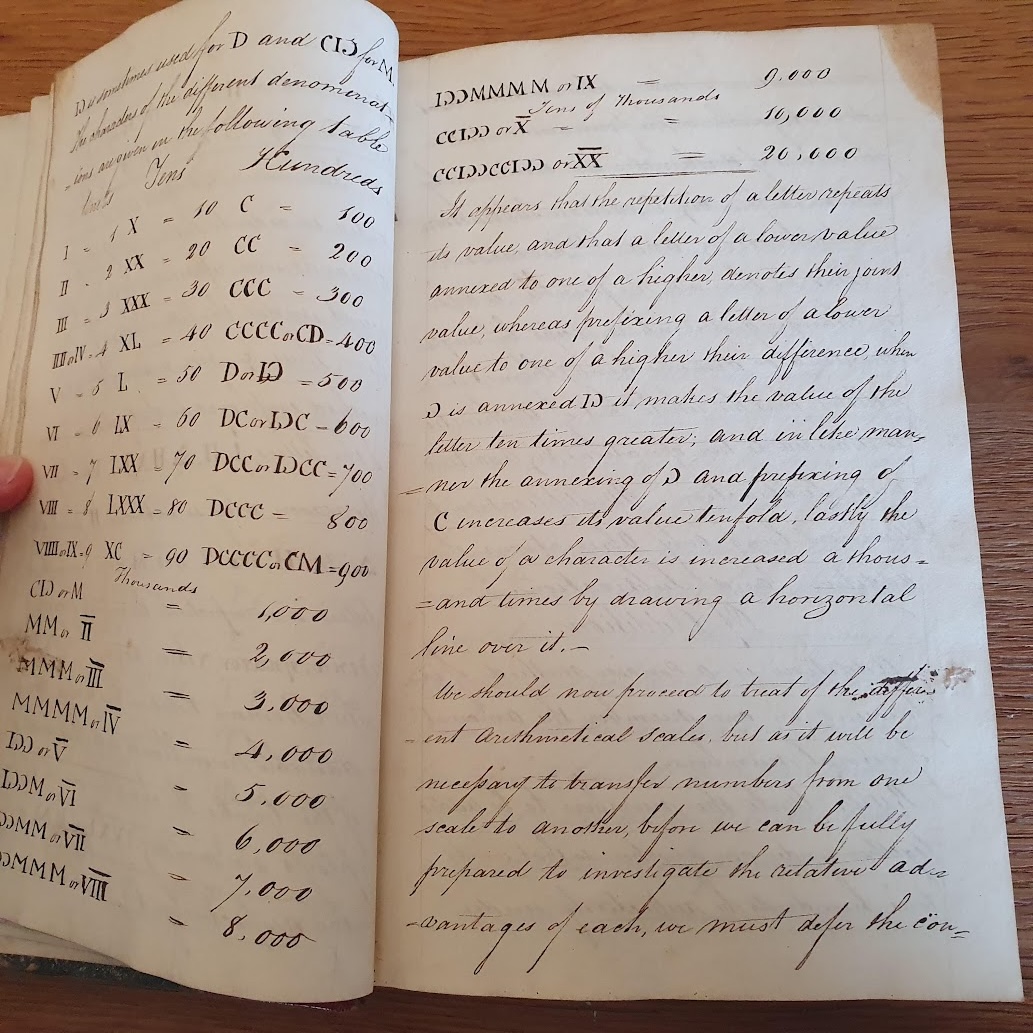 IↃ is sometimes used for D and CIↃ for M.
The characters of the different denominat-
=ions are given in the following table
Tens Hundreds
I = 1 X = 10 C = 100
II = 2 XX = 20 CC = 200
III = 3 XXX = 30 CCC = 300
IIII or IV = 4 XL = 40 CCCC or CD = 400
V = 5 L = 50 D or IↃ = 500
VI = 6 LX = 60 DC or IↃC = 600
VII = 7 LXX = 70 DCC or IↃCC = 700
VIII = 8 LXXX = 80 DCCC = 800
VIIII or IX = 9 XC = 90 DCCCC or CM = 900
Thousands
CIↃ or M = 1,000
MM or I̅I̅ = 2,000
MMM or I̅I̅I̅ = 3,000
MMMM or I̅V̅ = 4,000
IↃↃ or V̅ = 5,000
IↃↃM or V̅I̅ = 6,000
ↃↃMM or V̅I̅I̅ = 7,000
ↃↃMMM or V̅I̅I̅I̅ = 8,000
IↃↃMMMM or IX = 9,000
Tens of Thousands
CCIↃↃ or X̅ = = 10,000
CCIↃↃCCIↃↃ or X̅X̅ = 20,000
It appears that the repetition of a letter repeats
its value, and that a letter of a lower value
annexed to one of a higher, denotes their joint
value, whereas prefixing a letter of a lower
value to one of a higher their difference, when
Ↄ is annexed IↃ it makes the value of the
letter ten times greater; and in like man-
=ner the annexing of Ↄ and prefixing of
C increases its value tenfold, lastly the
value of a character is increased a thous=
=and times by drawing a horizontal
line over it.—
We should now proceed to treat of the differ
-ent Arethmetical scales, but as it will be
necessary to transfer numbers from one
scale to another, before we can be fully
prepared to investigate the relative ad=
-vantages of each, we must defer the con=